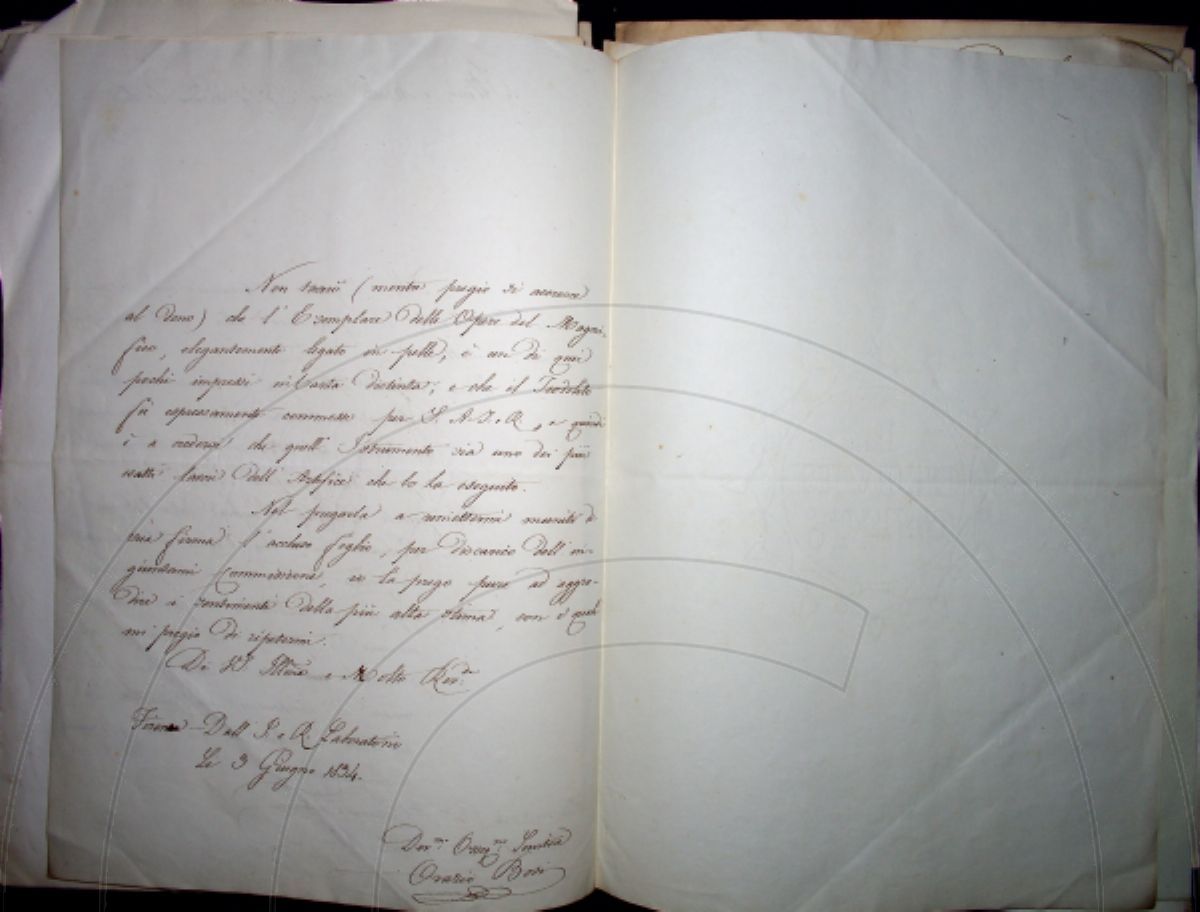 Non tacerò (mentre pregio si accresce
al dono) che l'Esemplare delle Opere del Magni-
fico, elegantemente legato in pelle, è un di quei
pochi impressi in Carta distinta; e che il Teodolite
fù espressamente commesso per S. A. I. e R., e quindi
è a credersi che quell'Istrumento sia uno dei più
esatti lavori dell'Artefice che lo ha eseguito.
Nel pregarla a rimettermi munito di
sua firma l'accluso foglio, per discarico dell'in-
giuntami Commissione, io la prego pure ad aggra-
dire i sentimenti della più alta stima, con i quali
mi pregio di ripetermi.
Di V. S. Illma e Molto Revda
Firenze Dall'I. e R. Laboratorio
Le 3 Giugno 1834.
Devmo Obbmo Servitore
Orazio